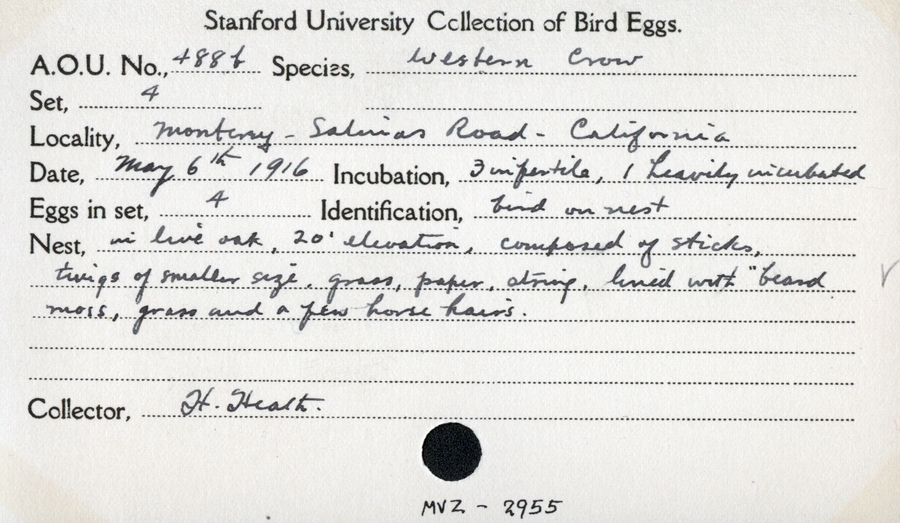 Stanford University Collection of Bird Eggs.
A.O.U. No., 488b Species, Western Crow
Set, 4
Locality, Monterey - Salinas Road - California
Date, May 6th 1916 Incubation, 3 infertile, 1 heavily incubated
Eggs in set, 4 Identification, bird on nest
Nest, in live oak, 20' elevation, composed of sticks,
twigs of smaller size, grass, paper, string, lined with "beard
moss, grass and a few horse hairs.
Collector, H. Heath.
MVZ - 2955